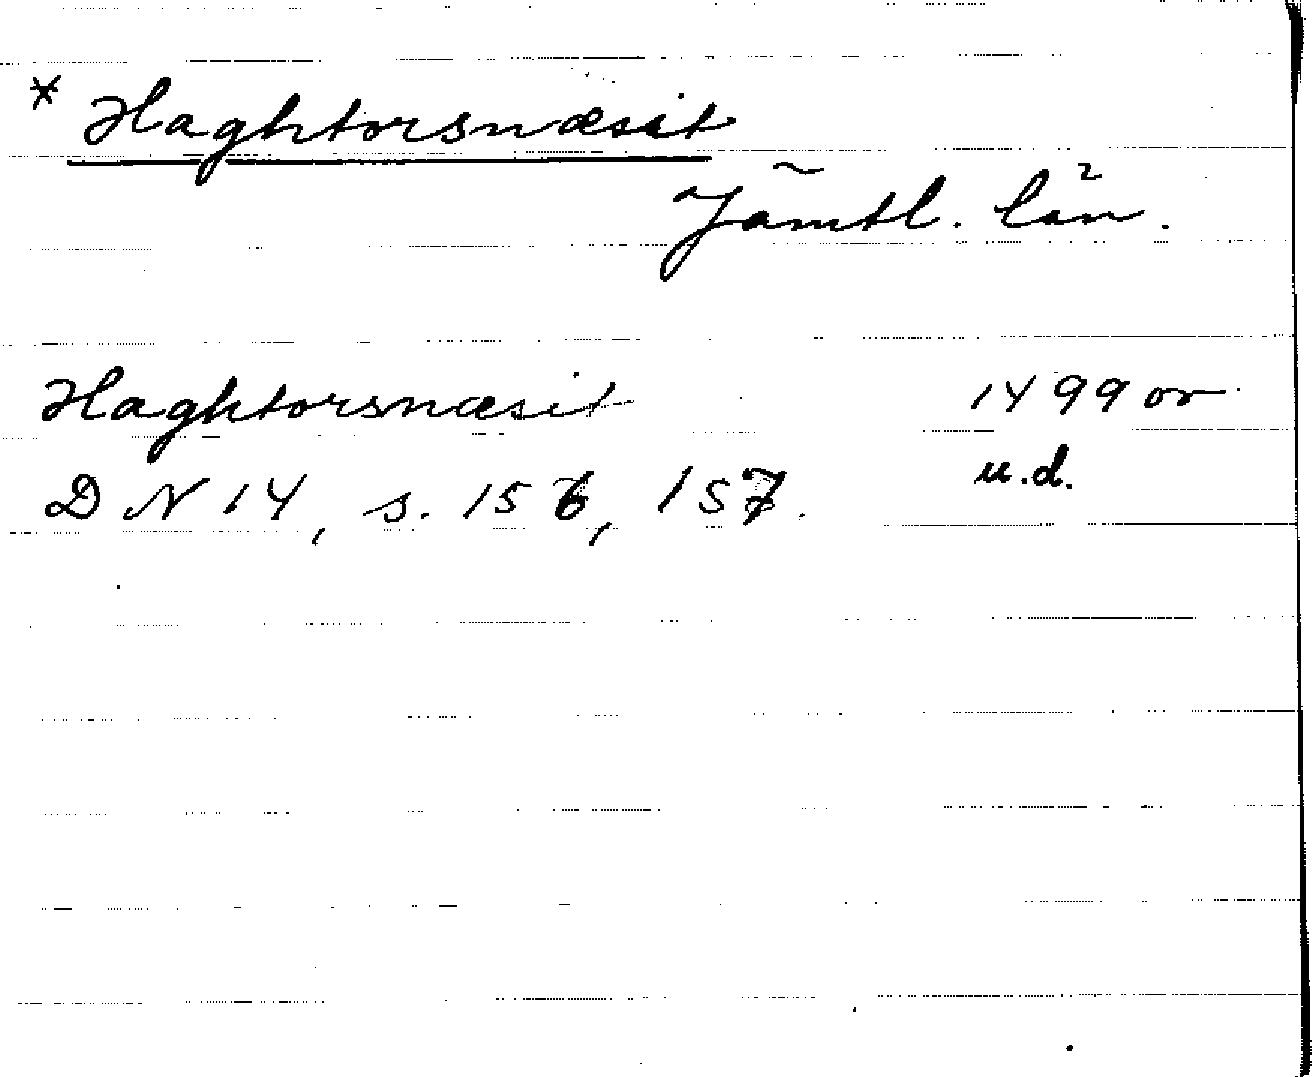 * Haghtorsnæsit
Jämtl. län.
Haghtorsnæsit 1499 or
DN 14, s. 156, 157. u.d.